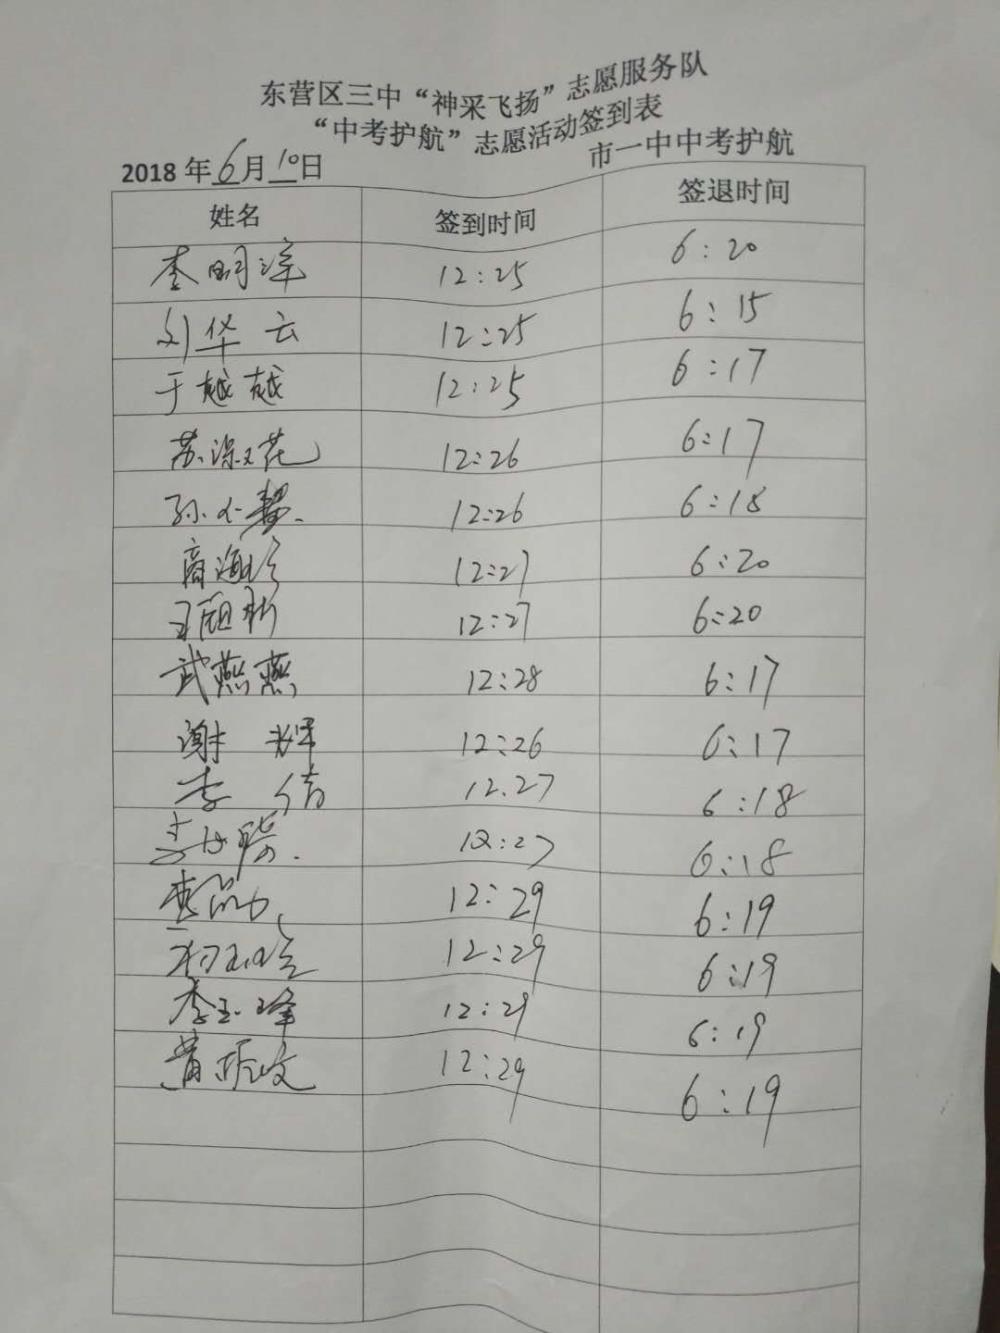 东营区三中“神采飞扬”志愿服务队
“中考护航”志愿活动签到表
2018年6月10日 市一中中考护航
姓名 签到时间 签退时间
李明洋 12:25 6:20
刘华云 12:25 6:15
于越越 12:25 6:17
苏深花 12:26 6:17
孙小 12:26 6:18
商海珍 12:27 6:20
王 12:27 6:20
武燕燕 12:28 6:17
谢辉 12:26 6:17
李倩 12.27 6:18
李 12:27 6:18
李 12:29 6:19
12:29 6:19
李玉峰 12:29 6:19
黄振 12:29 6:19